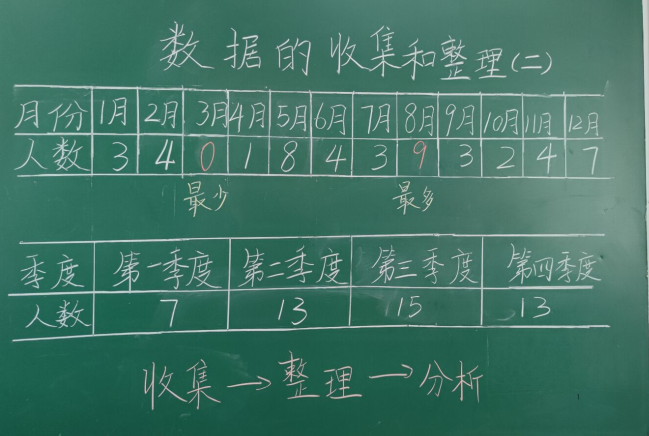 数据的收集和整理(二)
月份 1月 2月 3月 4月 5月 6月 7月 8月 9月 10月 11月 12月
人数 3 4 0 1 8 4 3 9 3 2 4 7
最少 最多
季度 第一季度 第二季度 第三季度 第四季度
人数 7 13 15 13
收集→整理→分析